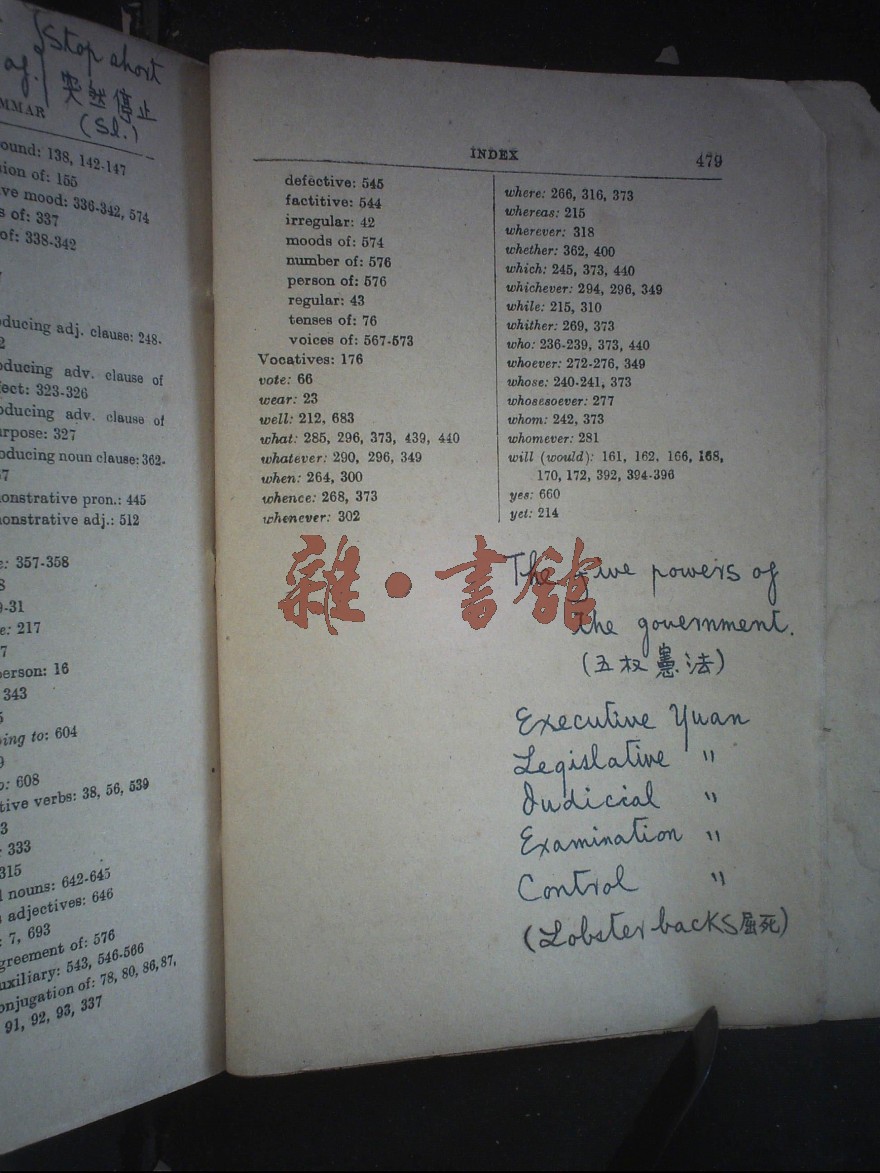 Stop short
of.
突然停止
(Sl.)
MMAR
ound: 138, 142-147
ion of: 155
ve mood: 336-342, 574
s of: 337
of: 338-342
oducing adj. clause: 248-
2
oducing adv. clause of
fect: 323-326
oducing adv. clause of
urpose: 327
oducing noun clause: 362-
67
monstrative pron.: 445
monstrative adj.: 512
e: 357-358
8
9-31
e: 217
7
person: 16
343
5
ving to: 604
9
o: 608
tive verbs: 38, 56, 539
3
: 333
315
l nouns: 642-645
s adjectives: 646
: 7, 693
greement of: 576
uxiliary: 543, 546-566
onjugation of: 78, 80, 86, 87,
91, 92, 93, 337
INDEX 479
defective: 545
factitive: 544
irregular: 42
moods of: 574
number of: 576
person of: 576
regular: 43
tenses of: 76
voices of: 567-573
Vocatives: 176
vote: 66
wear: 23
well: 212, 683
what: 285, 296, 373, 439, 440
whatever: 290, 296, 349
when: 264, 300
whence: 268, 373
whenever: 302
where: 266, 316, 373
whereas: 215
wherever: 318
whether: 362, 400
which: 245, 373, 440
whichever: 294, 296, 349
while: 215, 310
whither: 269, 373
who: 236-239, 373, 440
whoever: 272-276, 349
whose: 240-241, 373
whosesoever: 277
whom: 242, 373
whomever: 281
will (would): 161, 162, 166, 168,
170, 172, 392, 394-396
yes: 660
yet: 214
雜·書館
The five powers of
the government.
(五权憲法)
Executive Yuan
Legislative "
Judicial "
Examination "
Control "
(Lobster backs 屈死)